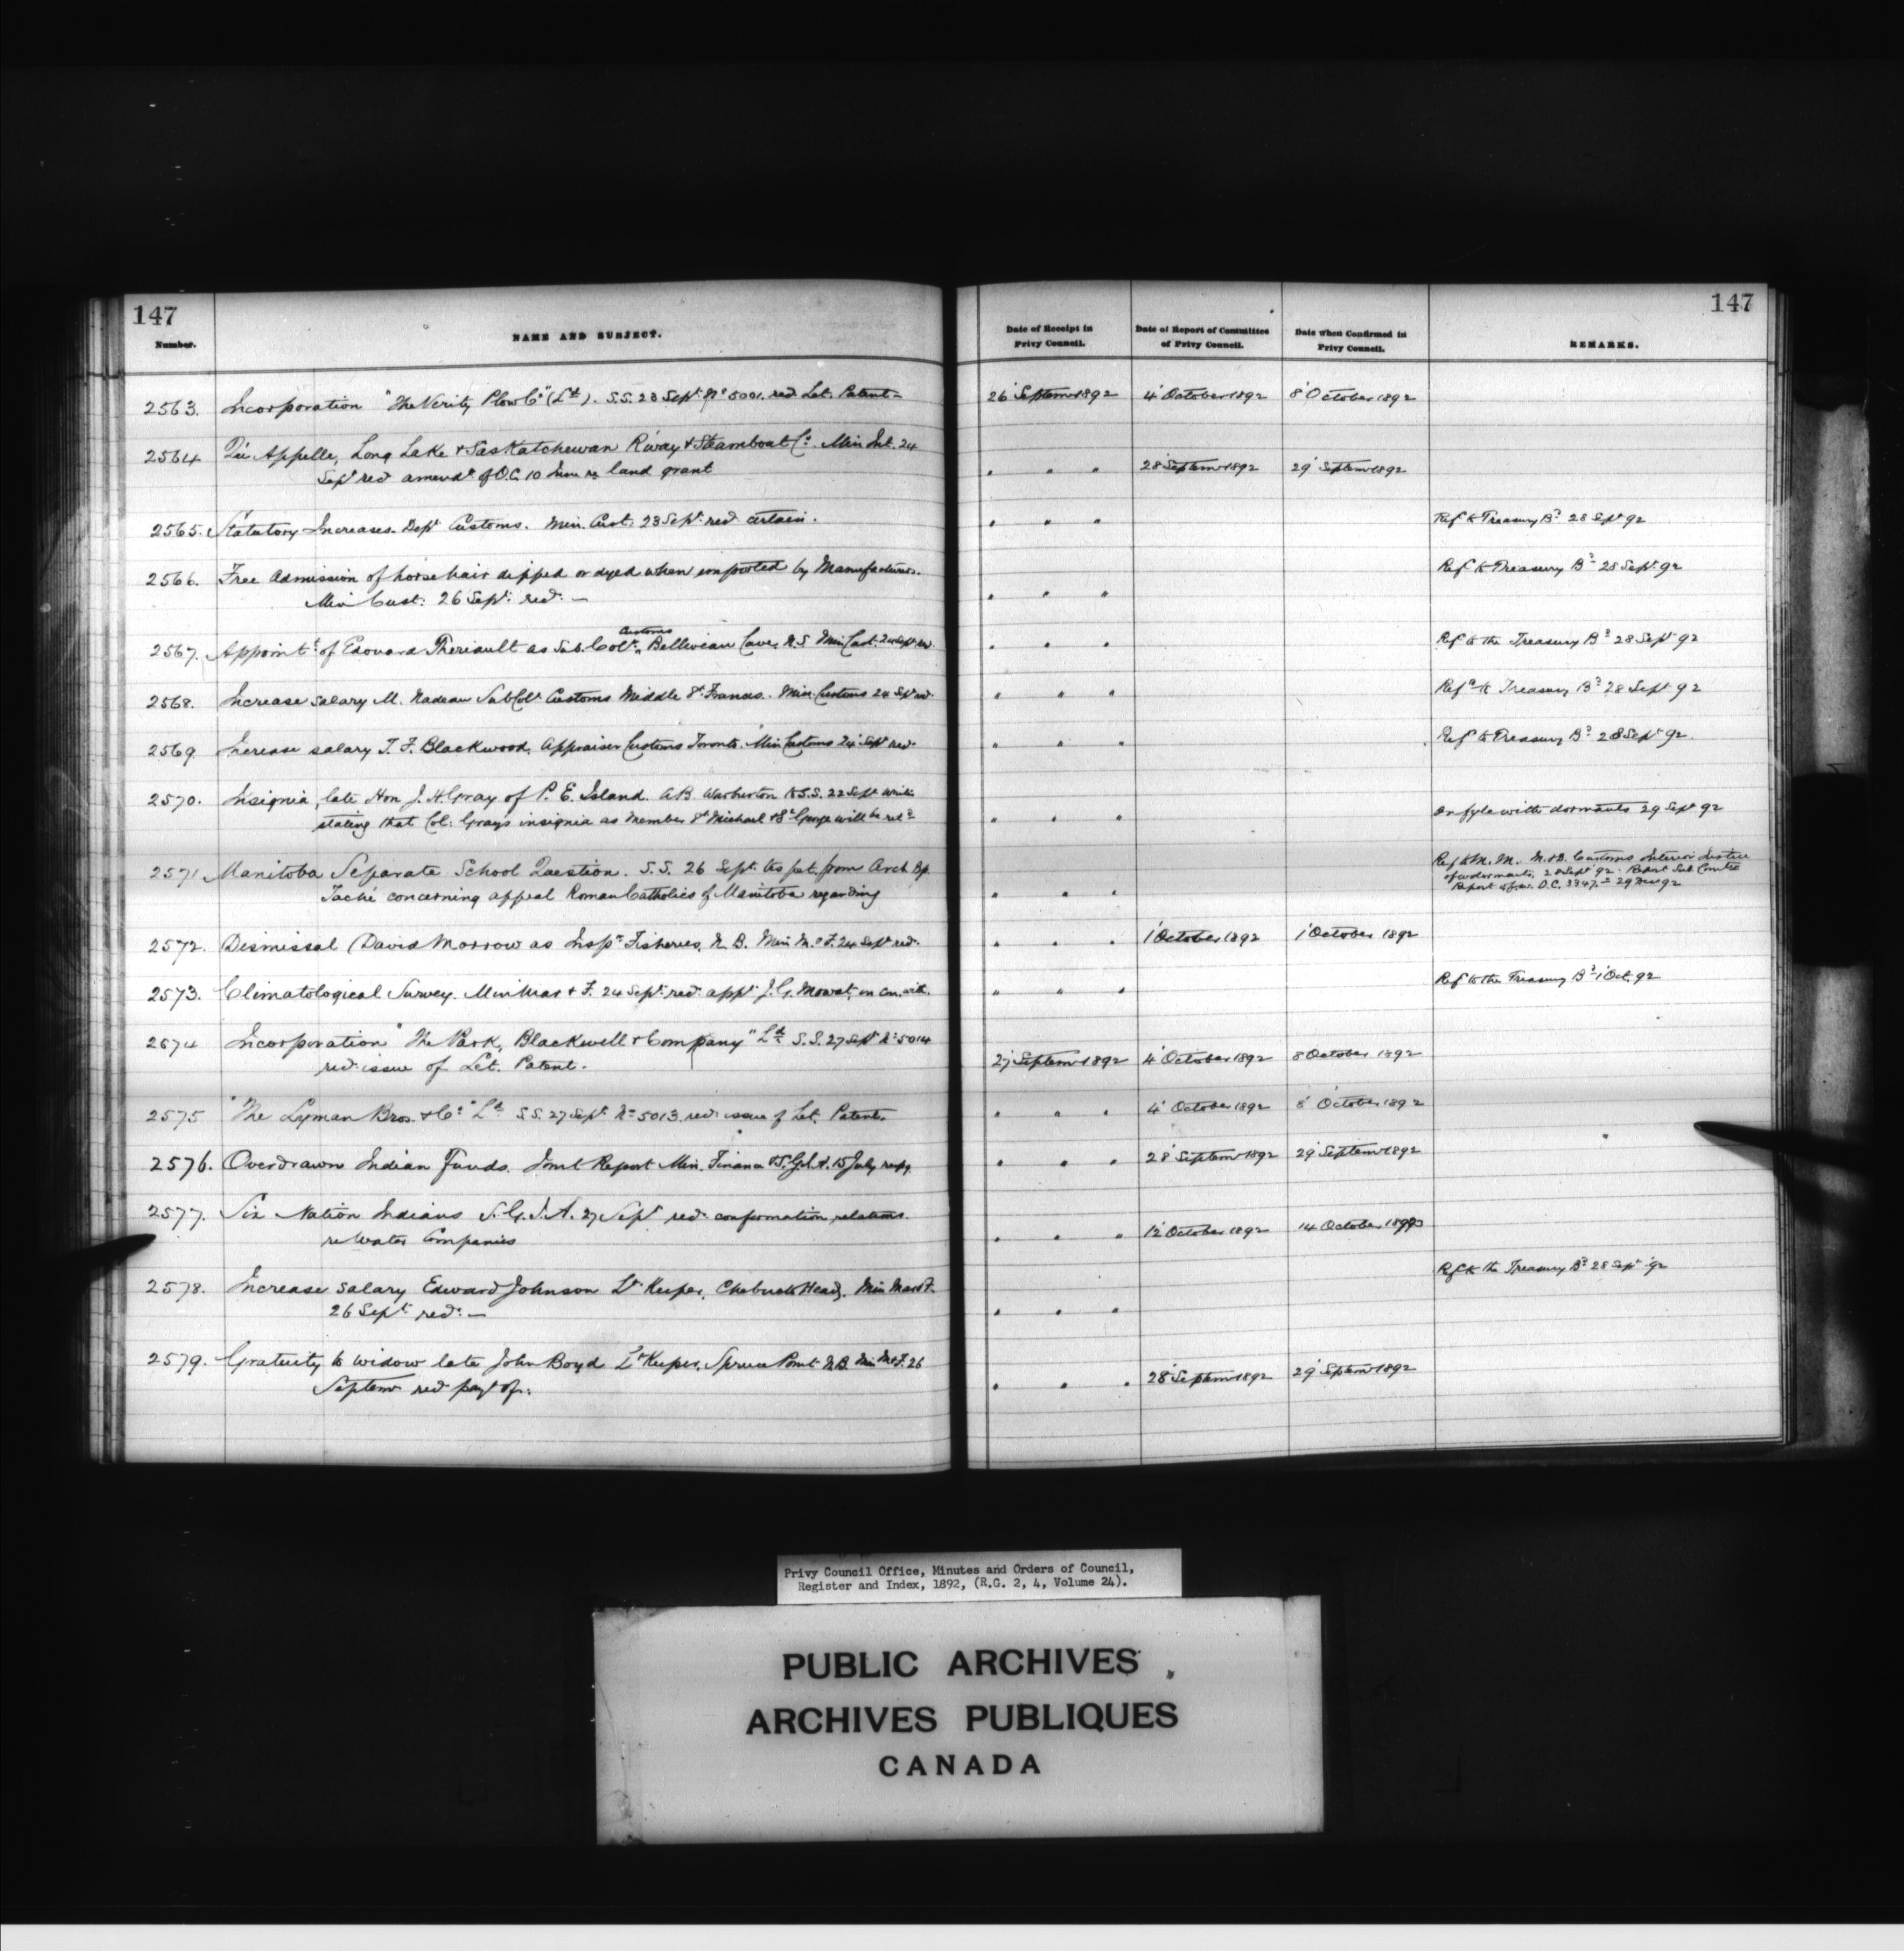 147
147
Number.
NAME AND SUBJECT.
Date of Receipt in Privy Council.
Date of Report of Committee of Privy Council.
Date when Confirmed in Privy Council.
REMARKS.
2563. Incorporation "The Verity Plow Co" (Ld). S.S. 23 Sept. No 5001. red Let. Patent = 26 Septemr 1892 4' October 1892 8' October 1892
2564 Qu'Appelle, Long Lake & Saskatchewan R'way & Steamboat Co. Min Int. 24
Sept red amendt of O.C. 10 June re land grant " " " 28 Septemr 1892 29' Septemr 1892
2565. Statutory Increases. Dept Customs. Min. Cust. 23 Sept. red certain. " " " Ref to Treasury Bd 28 Sept 92
2566. Free Admission of horse hair dipped or dyed when imported by Manufacturers. Ref to Treasury Bd 28 Sept. 92
Min Cust: 26 Sept. red: — " " "
2567. Appointt of Edouard Theriault as Sub. Colr Customs, Belliveau Cove, N.S. Min Cust. 24 Sept red. " " " Ref to the Treasury Bd 28 Sept 92
2568. Increase salary M. Nadeau Sub Colr Customs Middle St. Francis. Min. Customs 24 Sept red. " " " Refd to Treasury Bd 28 Sept 92
2569. Increase salary T. F. Blackwood, Appraiser Customs Toronto. Min Customs 24 Sept red. " " " Ref to Treasury Bd 28 Sept 92.
2570. Insignia, late Hon J. H. Gray of P. E. Island. A.B. Warburton to S.S. 22 Sept
stating that Col: Grays insignia as Member St Michael & St George will be retd " " " On fyle with dormants 29 Sept 92
2571 Manitoba Separate School Question. S.S. 26 Sept. tos pet. from Arch Bp. Ref to M. M. M. & D. Customs Interior Justice
Taché concerning appeal Roman Catholics of Manitoba regarding " " " 28 Sept 92. Report Sub Comtee
Report O.C. 3347 = 29 Decr 92
2572. Dismissal David Morrow as Inspr Fisheries, N. B. Min M. & F. 24 Sept red. " " " 1' October 1892 1' October 1892
2573. Climatological Survey. Min Mar & F. 24 Sept. red. appt J. G. Mowat, in con. with. " " " Ref to the Treasury Bd 1' Oct. 92
2574 Incorporation "The Park, Blackwell & Company" Ld S.S. 27 Sept No 5014
red: issue of Let. Patent. 27' Septemr 1892 4' October 1892 8 October 1892
2575 "The Lyman Bros. & Co" Ld S.S. 27 Sept. No 5013. red: issue of Let. Patent. " " " 4' October 1892 8' October 1892
2576. Overdrawn Indian Funds. Joint Report Min. Finance & S. Gl. I. A. 15 July respg. " " " 28' Septemr 1892 29' Septemr 1892
2577. Six Nation Indians S. G. I. A. 27 Sept red confirmation relations.
re Water Companies " " " 12' October 1892 14 October 1892
2578. Increase salary Edward Johnson Lt Keeper, Chebucto Head, Min Mar & F. Ref to the Treasury Bd 28 Sept 92
26 Sept. red: — " " "
2579. Gratuity to widow late John Boyd Lt Keeper, Spruce Point N.B. Min M & F. 26
Septemr red payt of: " " " 28' Septemr 1892 29' Septemr 1892
Privy Council Office, Minutes and Orders of Council,
Register and Index, 1892, (R.G. 2, 4, Volume 24).
PUBLIC ARCHIVES
ARCHIVES PUBLIQUES
CANADA